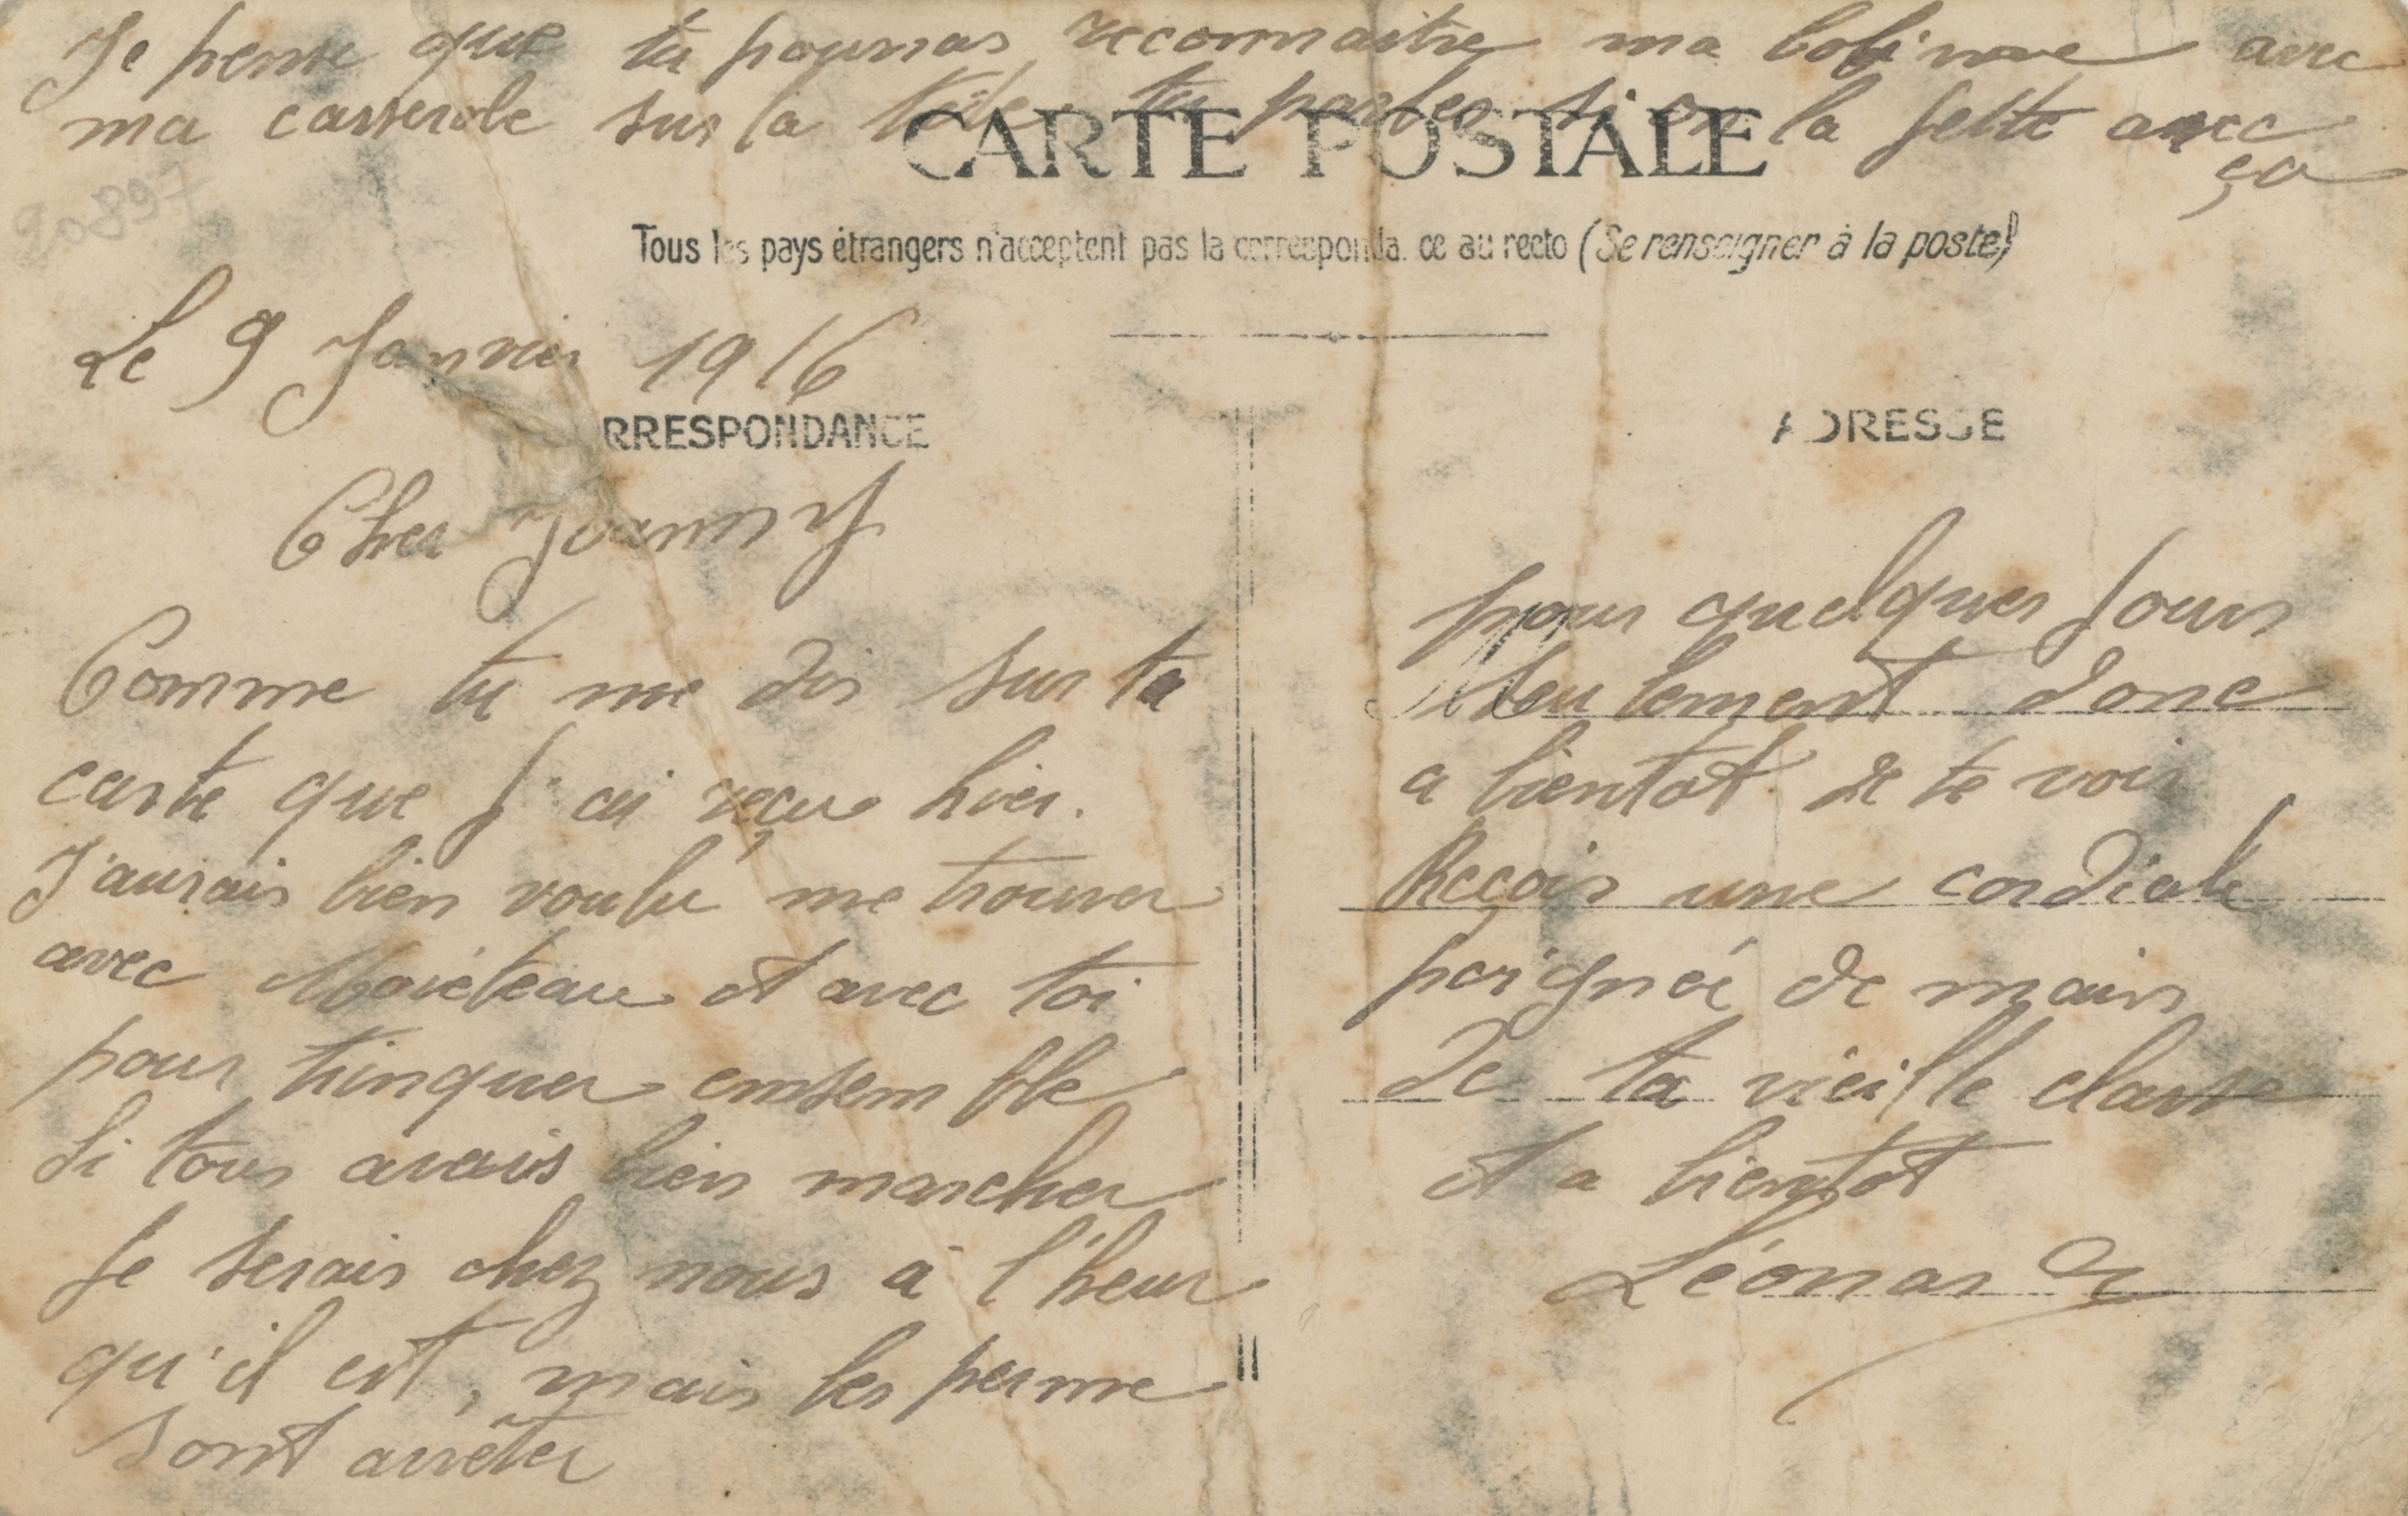 Je pense que tu pourras reconnaitre ma bobinne avec
ma casserole sur la tête. tu parles si on la saute avec
ça
CARTE POSTALE
20897
Tous les pays étrangers n'acceptent pas la correspondance au recto (Se renseigner à la poste)
Le 9 Janvier 1916
RRESPONDANCE
Cher Joanny
Comme tu me dis sur ta
carte que j'ai reçu hier.
J'aurais bien voulu me trouver
avec et avec toi
pour trinquer ensemble
Si tous avais bien marcher
Je serais chez nous à l'heur
qu'il est, mais les perme
sont arrêter
ADRESSE
M
pour quelques Jours
seulement donc
a bientot de te voir
Reçois une cordiale
poignée de mains
de ta vieille classe
et a bientot
Léonard